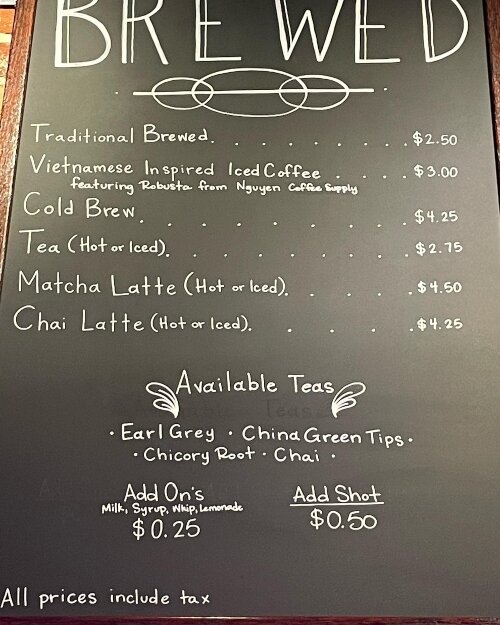 BREWED
Traditional Brewed. . . . . . . . $2.50
Vietnamese Inspired Iced Coffee . . . . $3.00
featuring Robusta from Nguyen Coffee Supply
Cold Brew. . . . . . . . $4.25
Tea (Hot or Iced). . . . . . . . $2.75
Matcha Latte (Hot or Iced). . . . . $4.50
Chai Latte (Hot or Iced). . . . . $4.25
Available Teas
· Earl Grey · China Green Tips ·
· Chicory Root · Chai ·
Add On's
Milk, Syrup, Whip, Lemonade
$0.25
Add Shot
$0.50
All prices include tax